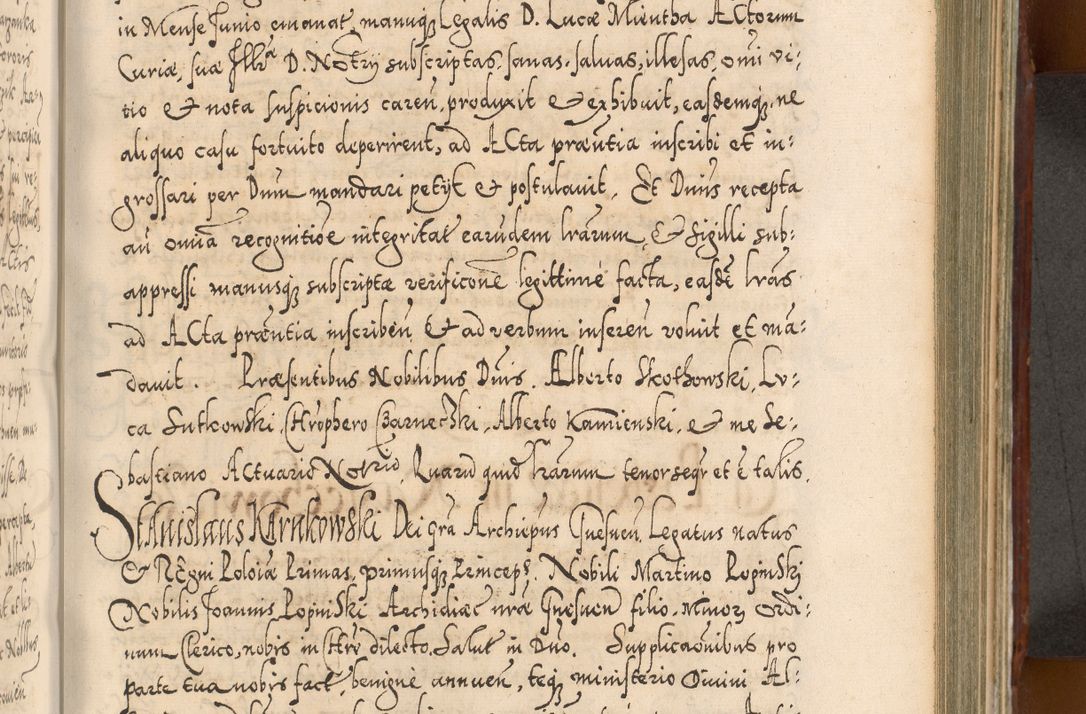 in Mense Junio emanat, manuq₃ legalis D. Lucæ Mientha Actorum
Curiæ, suæ Illr̃æ D. Notrij subscriptas, sanas, saluas, illesas, omi vi-
tio & nota suspicionis careñ, produxit & exhibuit, easdemq₃, ne
aliquo casu fortuito deperirent, ad Acta præñtia inscribi et in-
grossari per Dnum mandari petijt & postulauit. Et Dnus recepta
añ omia recognitiõe integritat earudem lrarum, & sigilli sub-
appressi manusq₃ subscriptæ verificone legittimè facta, easdẽ lras
ad Acta præñtia inscribeñ & ad verbum insereñ voluit et mã-
dauit. Præsentibus Nobilibus Dnis. Alberto Skothowski, Lu-
ca Sutkowski, Chrophero Czarnecki, Alberto Kamienski, & me Se-
bastiano Actuario Notrio, Quarũ quid lrarum tenor seqr et ẽ talis.
Stanislaus Karnkowski Dei gra Archiepus Gnesneñ. Legatus natus
& Regni Poloiæ Primas, primusq₃ Princeps. Nobili Martino Ropinski
Nobilis Joannis Ropniski Archidiæc nræ Gnesneñ filio. Minorz Ordi-
num Clerico, nobis in Chrō dilecto. Salut in Dno. Supplicaõnibus pro
parte tua nobis fact, benignè annueñ, teq₃ ministerio Diuini Al-